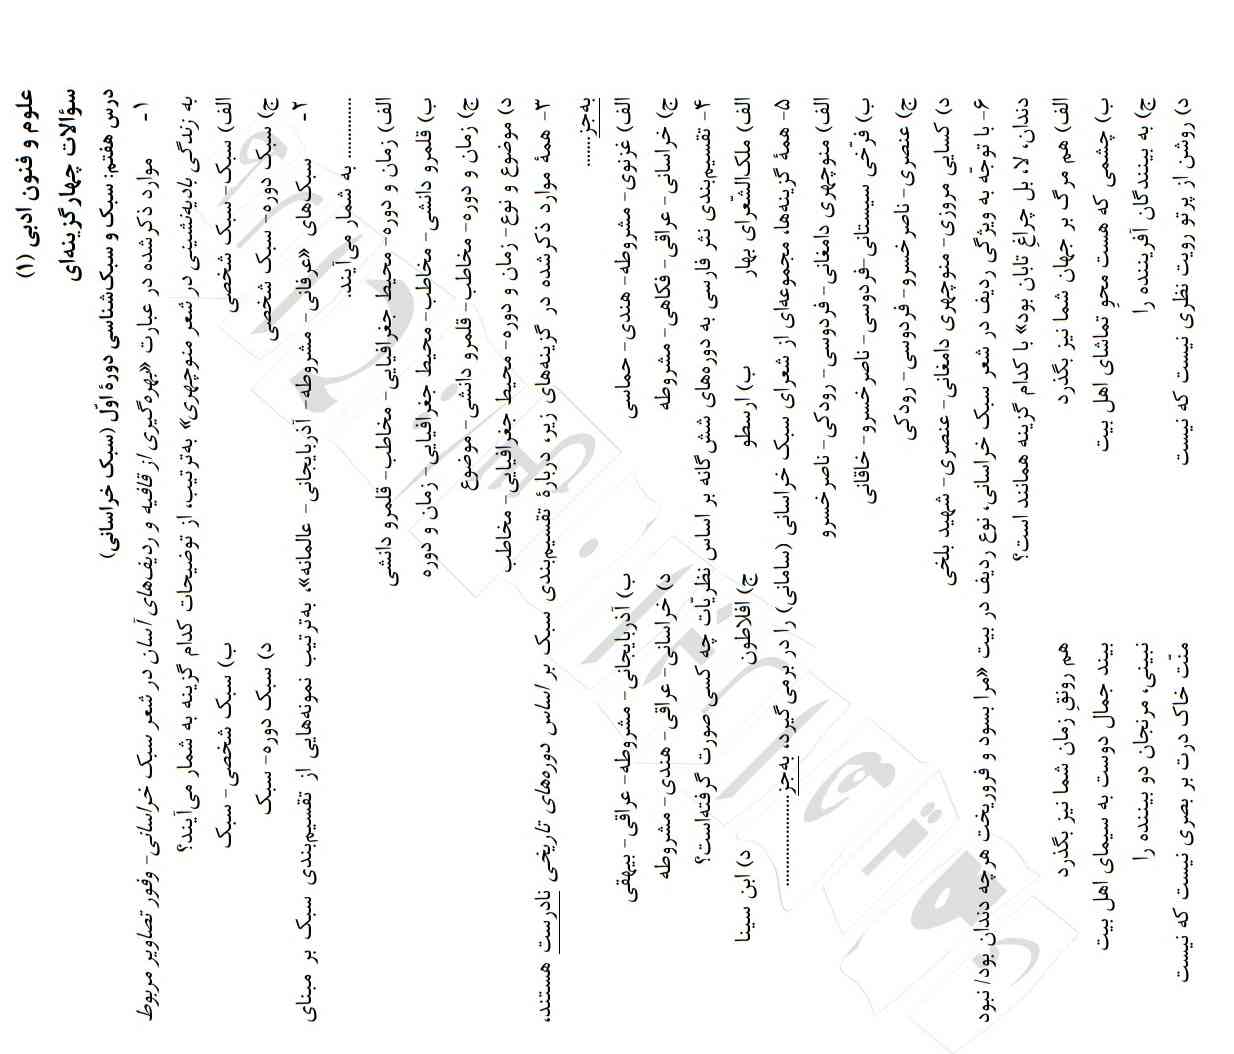 علوم و فنون ادبی (۱)
سؤالات چهارگزینه‌ای
درس هفتم: سبک و سبک‌شناسی دورهٔ اوّل (سبک خراسانی)
۱- موارد ذکرشده در عبارت «بهره‌گیری از قافیه و ردیف‌های آسان در شعر سبک خراسانی- وفور تصاویر مربوط
به زندگی بادیه‌نشینی در شعر منوچهری» به‌ترتیب، از توضیحات کدام گزینه به شمار می‌آیند؟
الف) سبک- سبک شخصی ب) سبک شخصی- سبک
ج) سبک دوره- سبک شخصی د) سبک دوره- سبک
۲- سبک‌های «عرفانی- مشروطه- آذربایجانی- عالمانه»، به‌ترتیب نمونه‌هایی از تقسیم‌بندی سبک بر مبنای
............... به شمار می‌آیند.
الف) زمان و دوره- محیط جغرافیایی- مخاطب- قلمرو دانشی
ب) قلمرو دانشی- مخاطب- محیط جغرافیایی- زمان و دوره
ج) زمان و دوره- مخاطب- قلمرو دانشی- موضوع
د) موضوع و نوع- زمان و دوره- محیط جغرافیایی- مخاطب
۳- همهٔ موارد ذکرشده در گزینه‌های زیر، دربارهٔ تقسیم‌بندی سبک بر اساس دوره‌های تاریخی نادرست هستند،
به‌جز.......
الف) غزنوی- مشروطه- هندی- حماسی ب) آذربایجانی- مشروطه- عراقی- بیهقی
ج) خراسانی- عراقی- فکاهی- مشروطه د) خراسانی- عراقی- هندی- مشروطه
۴- تقسیم‌بندی نثر فارسی به دوره‌های شش‌گانه بر اساس نظریّات چه کسی صورت گرفته‌است؟
الف) ملک‌الشّعرای بهار ب) ارسطو ج) افلاطون د) ابن سینا
۵- همهٔ گزینه‌ها، مجموعه‌ای از شعرای سبک خراسانی (سامانی) را در برمی‌گیرد، به‌جز...............
الف) منوچهری دامغانی- فردوسی- رودکی- ناصرخسرو
ب) فرّخی سیستانی-فردوسی- ناصرخسرو- خاقانی
ج) عنصری- ناصرخسرو- فردوسی- رودکی
د) کسایی مروزی- منوچهری دامغانی- عنصری- شهید بلخی
۶- با توجّه به ویژگی ردیف در شعر سبک خراسانی، نوع ردیف در بیت «مرا بسود و فروریخت هرچه دندان بود/ نبود
دندان، لا، بل چراغِ تابان بود» با کدام گزینه همانند است؟
الف) هم مرگ بر جهان شما نیز بگذرد هم رونق زمان شما نیز بگذرد
ب) چشمی که هست محوِ تماشای اهل بیت بیند جمال دوست به سیمای اهل بیت
ج) به بینندگان آفریننده را نبینی، مرنجان دو بیننده را
د) روشن از پرتو رویت نظری نیست که نیست منّت خاک درت بر بصری نیست که نیست